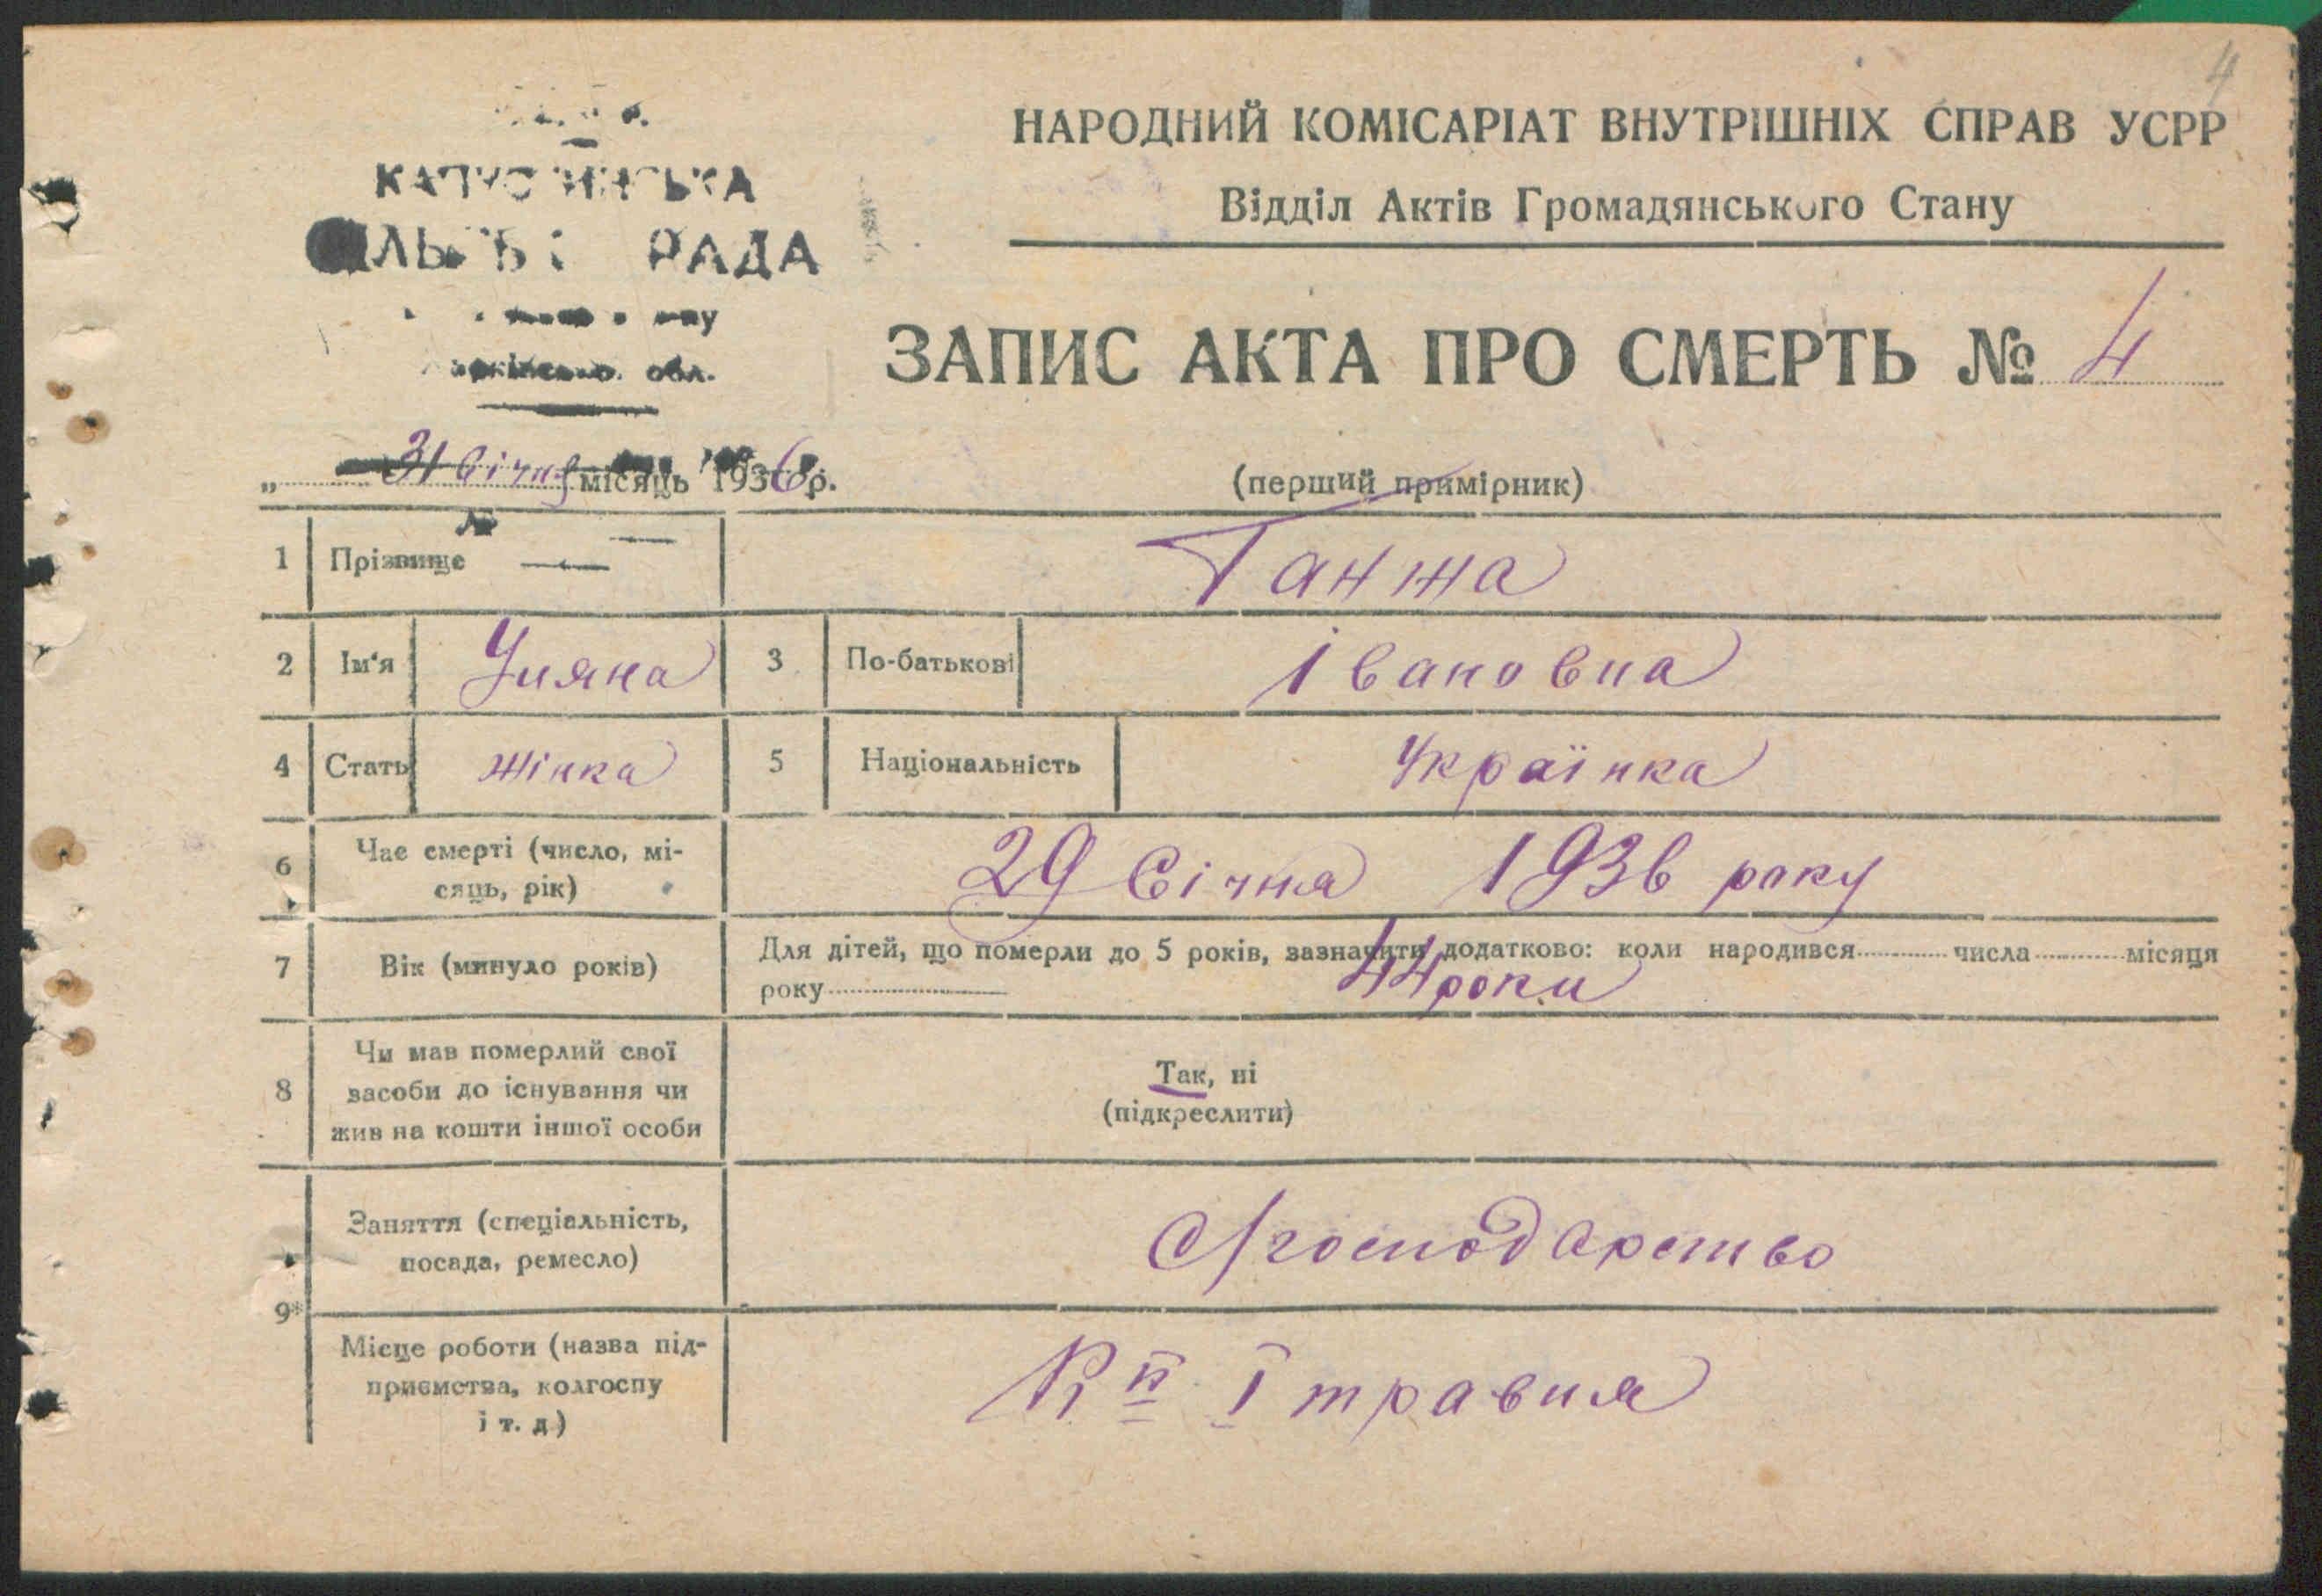 4
НАРОДНИЙ КОМІСАРІАТ ВНУТРІШНІХ СПРАВ УСРР
Відділ Актів Громадянського Стану
РАДА
обл.
ЗАПИС АКТА ПРО СМЕРТЬ № 4
„ 31 Січня місяць 1936 р.
(перший примірник)
№
1 Прізвище Ганжа
2 Ім'я Уляна 3 По-батькові Івановна
4 Стать жінка 5 Національність Українка
6 Час смерті (число, мі-
сяць, рік) 29 Січня 1936 року
7 Вік (минуло років) Для дітей, що померли до 5 років, зазначити додатково: коли народився числа місяця
року 44 роки
8 Чи мав померлий свої
засоби до існування чи
жив на кошти іншої особи
Так, ні
(підкреслити)
9*
Заняття (спеціальність,
посада, ремесло) С/господарство
Місце роботи (назва під-
приємства, колгоспу
і т. д.) І травня